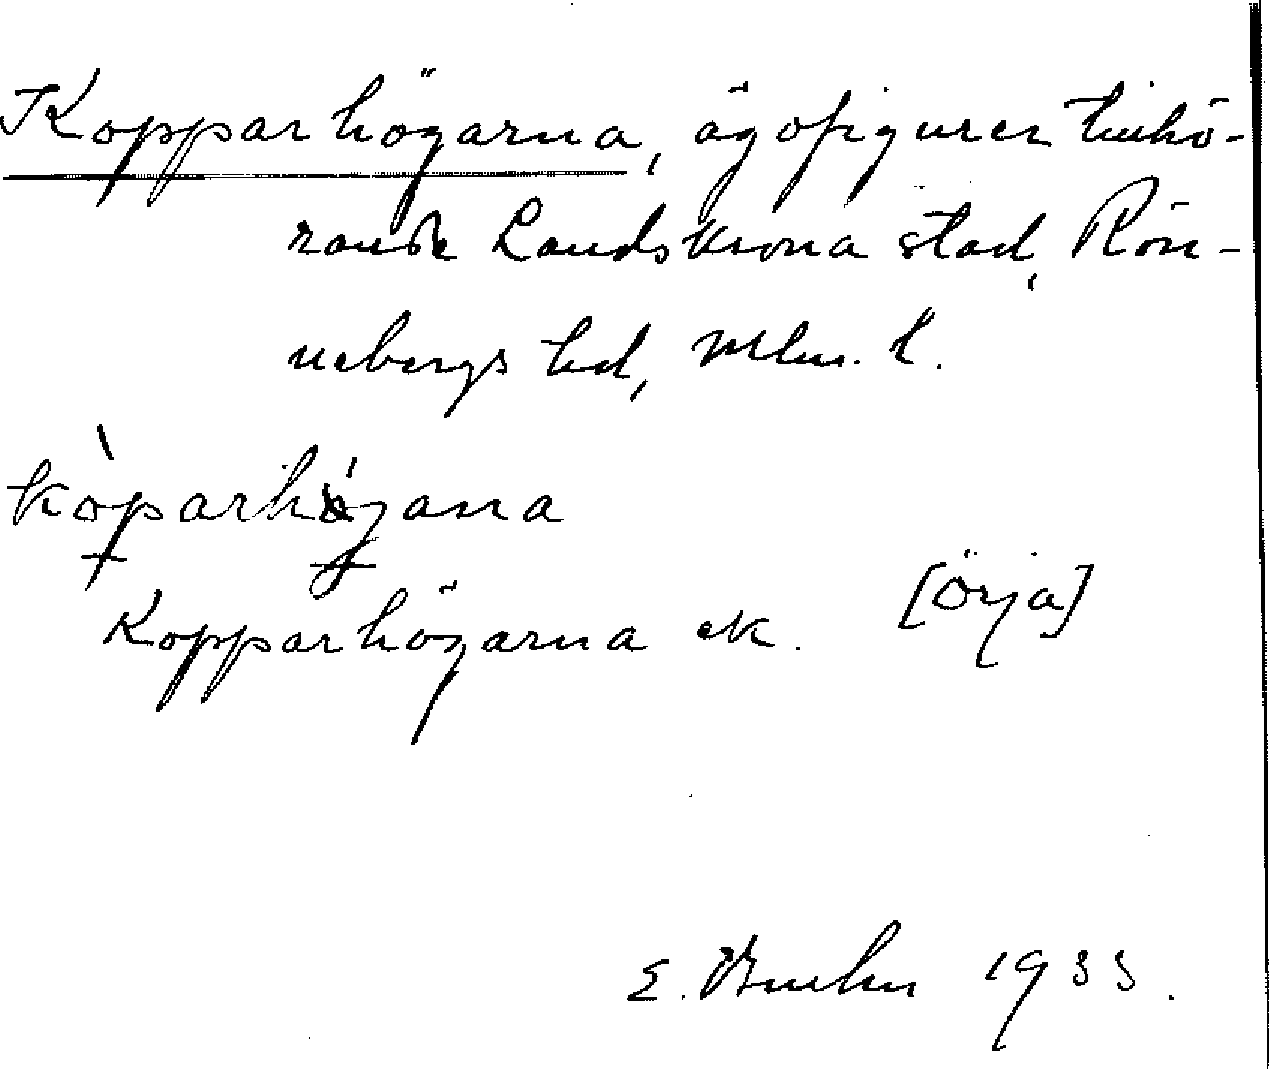 Kopparhögarna, ägofigurer tillhö-
rande Landskrona stad, Rön-
nebergs hd, Mlm. l.
kòparhǿjana
Kopparhögarna ek. [Örja]
E. Bruhn 1933.